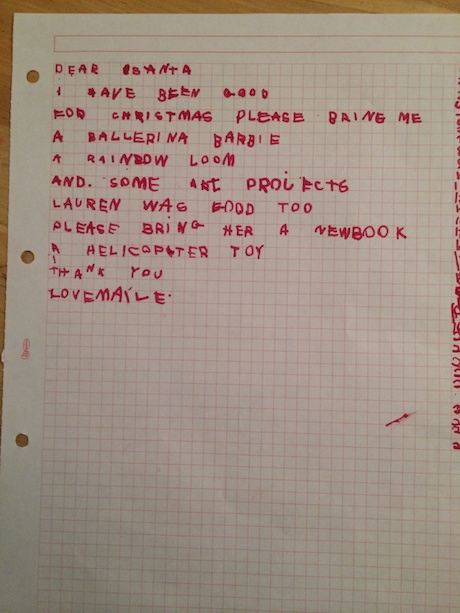 DEAR SANTA
I HAVE BEEN GOOD
FOR CHRISTMAS PLEASE BRING ME
A BALLERINA BARBIE
A RAINBOW LOOM
AND. SOME ART PROJECTS
LAUREN WAS GOOD TOO
PLEASE BRING HER A NEWBOOK
A HELICOPTER TOY
THANK YOU
LOVEMAILE.